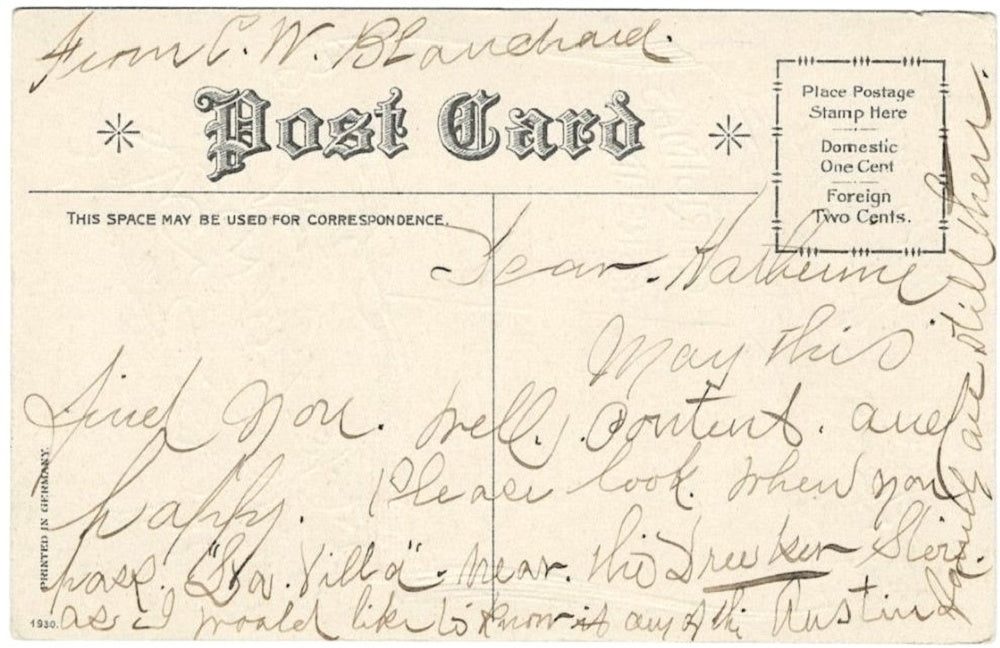 From C. W. Blanchard.
Post Card
Place Postage
Stamp Here
Domestic
One Cent
Foreign
Two Cents.
THIS SPACE MAY BE USED FOR CORRESPONDENCE.
Dear. Katherine
May this
find you. well. content. and
happy. Please look. when you
pass. "La. Villa" near. the Store.
as I would like to know if any of the Austin
family are still there.
PRINTED IN GERMANY.
1930.